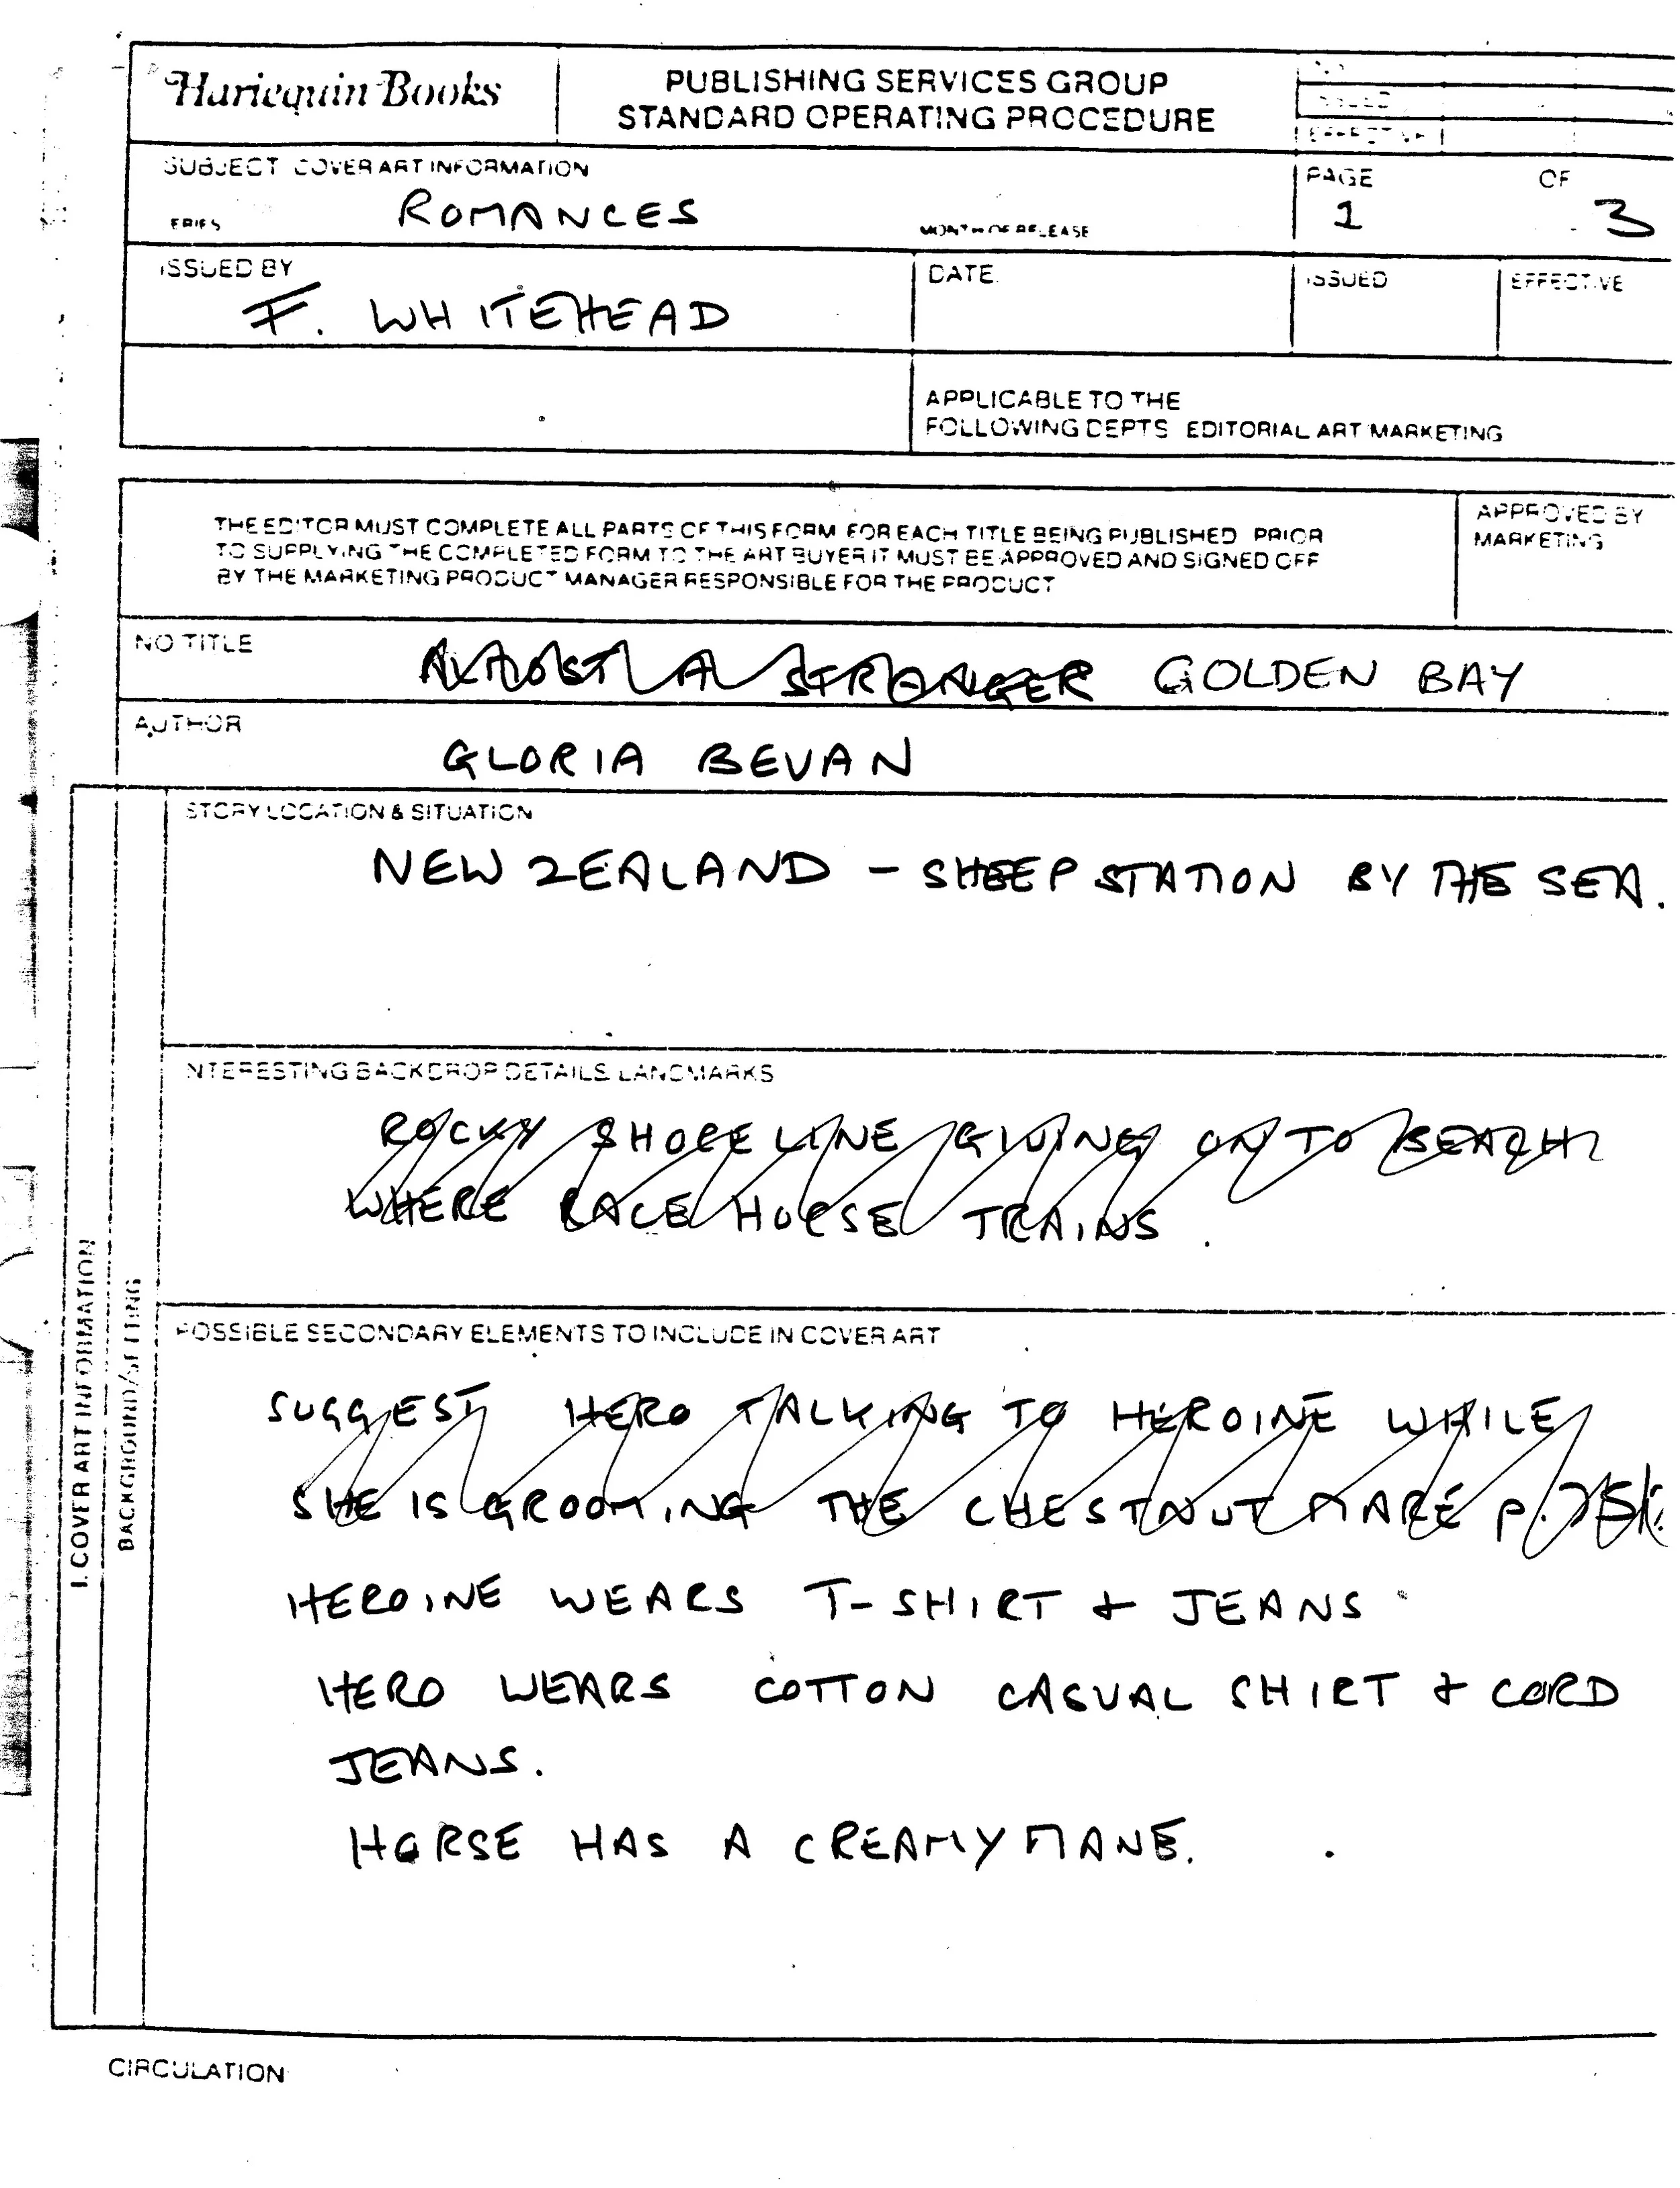 Harlequin Books
PUBLISHING SERVICES GROUP
STANDARD OPERATING PROCEDURE
ISSUED
EFFECTIVE
SUBJECT COVER ART INFORMATION
PAGE OF
ERIES ROMANCES MONTH OF RELEASE
1 3
ISSUED BY
F. WHITEHEAD
DATE.
ISSUED
EFFECTIVE
APPLICABLE TO THE
FOLLOWING DEPTS EDITORIAL ART MARKETING
THE EDITOR MUST COMPLETE ALL PARTS OF THIS FORM FOR EACH TITLE BEING PUBLISHED PRIOR
TO SUPPLYING THE COMPLETED FORM TO THE ART BUYER IT MUST BE APPROVED AND SIGNED OFF
BY THE MARKETING PRODUCT MANAGER RESPONSIBLE FOR THE PRODUCT
APPROVED BY
MARKETING
NO TITLE
ALMOST A STRANGER GOLDEN BAY
AUTHOR
GLORIA BEVAN
I. COVER ART INFORMATION
BACKGROUND/SETTING
STORY LOCATION & SITUATION
NEW ZEALAND - SHEEP STATION BY THE SEA.
NTERESTING BACKDROP DETAILS LANDMARKS
ROCKY SHORE LINE GIVING ON TO BEACH
WHERE RACE HORSE TRAINS.
POSSIBLE SECONDARY ELEMENTS TO INCLUDE IN COVER ART
SUGGEST HERO TALKING TO HEROINE WHILE
SHE IS GROOMING THE CHESTNUT MARE
HEROINE WEARS T-SHIRT & JEANS
HERO WEARS COTTON CASUAL SHIRT & CORD
JEANS.
HORSE HAS A CREAMY MANE.
CIRCULATION